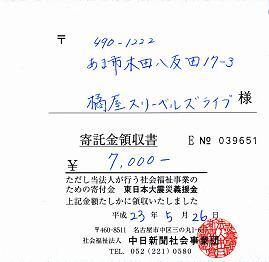 〒
490-1222
あま市木田八反田17-3
橘屋スリーベルズライブ 様
寄託金領収書 E № 039651
¥ 7,000-
ただし当法人が行う社会福祉事業の
ための寄付金 東日本大震災義援金
上記金額たしかに領収いたしました
平成 23年 5月 26日
〒460-8511 名古屋市中区三の丸1-6-1
社会福祉法人 中日新聞社会事業団
TEL 052(221)0580